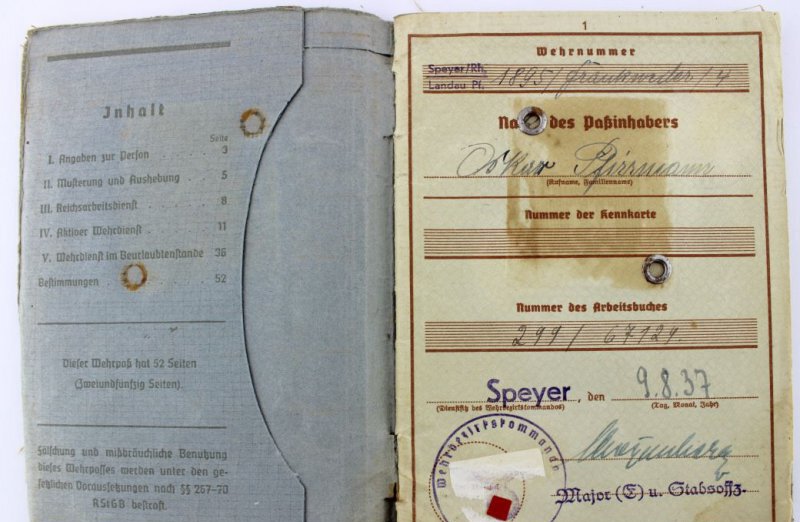 Inhalt
Seite
I. Angaben zur Person . 3
II. Musterung und Aushebung . 5
III. Reichsarbeitsdienst . . 8
IV. Aktiver Wehrdienst . . 11
V. Wehrdienst im Beurlaubtenstande 36
Bestimmungen . . . 52
Dieser Wehrpaß hat 52 Seiten
(Zweiundfünfzig Seiten).
Fälschung und mißbräuchliche Benutzung
dieses Wehrpasses werden unter den ge-
setzlichen Voraussetzungen nach §§ 267–70
RStGB bestraft.
1
Wehrnummer
Speyer/Rh.
Landau Pf.
1895/Frankweiler/4
des Paßinhabers
Oskar Pfirrmann
(Rufname, Familienname)
Nummer der Kennkarte
Nummer des Arbeitsbuches
299/67129.
Speyer, den 9.8.37
(Dienstsitz des Wehrbezirkskommandos) (Tag, Monat, Jahr)
Wehrbezirkskommando
Major (E) u. Stabsoffz.